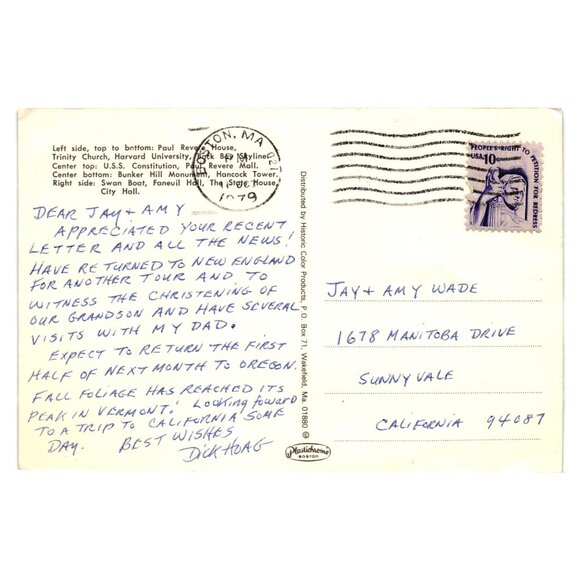 Left side, top to bottom: Paul Revere House,
Trinity Church, Harvard University, Back Bay Skyline,
Center top: U.S.S. Constitution, Paul Revere Mall.
Center bottom: Bunker Hill Monument, Hancock Tower.
Right side: Swan Boat, Faneuil Hall, The State House,
City Hall.
BOSTON, MA 021
PM
OCT
1979
PEOPLE'S RIGHT TO PETITION FOR REDRESS
USA 10c
DEAR JAY + AMY
APPRECIATED YOUR RECENT
LETTER AND ALL THE NEWS!
HAVE RETURNED TO NEW ENGLAND
FOR ANOTHER TOUR AND TO
WITNESS THE CHRISTENING OF
OUR GRANDSON AND HAVE SEVERAL
VISITS WITH MY DAD.
EXPECT TO RETURN THE FIRST
HALF OF NEXT MONTH TO OREGON.
FALL FOLIAGE HAS REACHED ITS
PEAK IN VERMONT! Looking forward
TO A TRIP TO CALIFORNIA SOME
DAY. BEST WISHES
DICK HOAG
Distributed by Historic Color Products, P.O. Box 71, Wakefield, Ma. 01880 ©
Plastichrome
BOSTON
JAY + AMY WADE
1678 MANITOBA DRIVE
SUNNYVALE
CALIFORNIA 94087